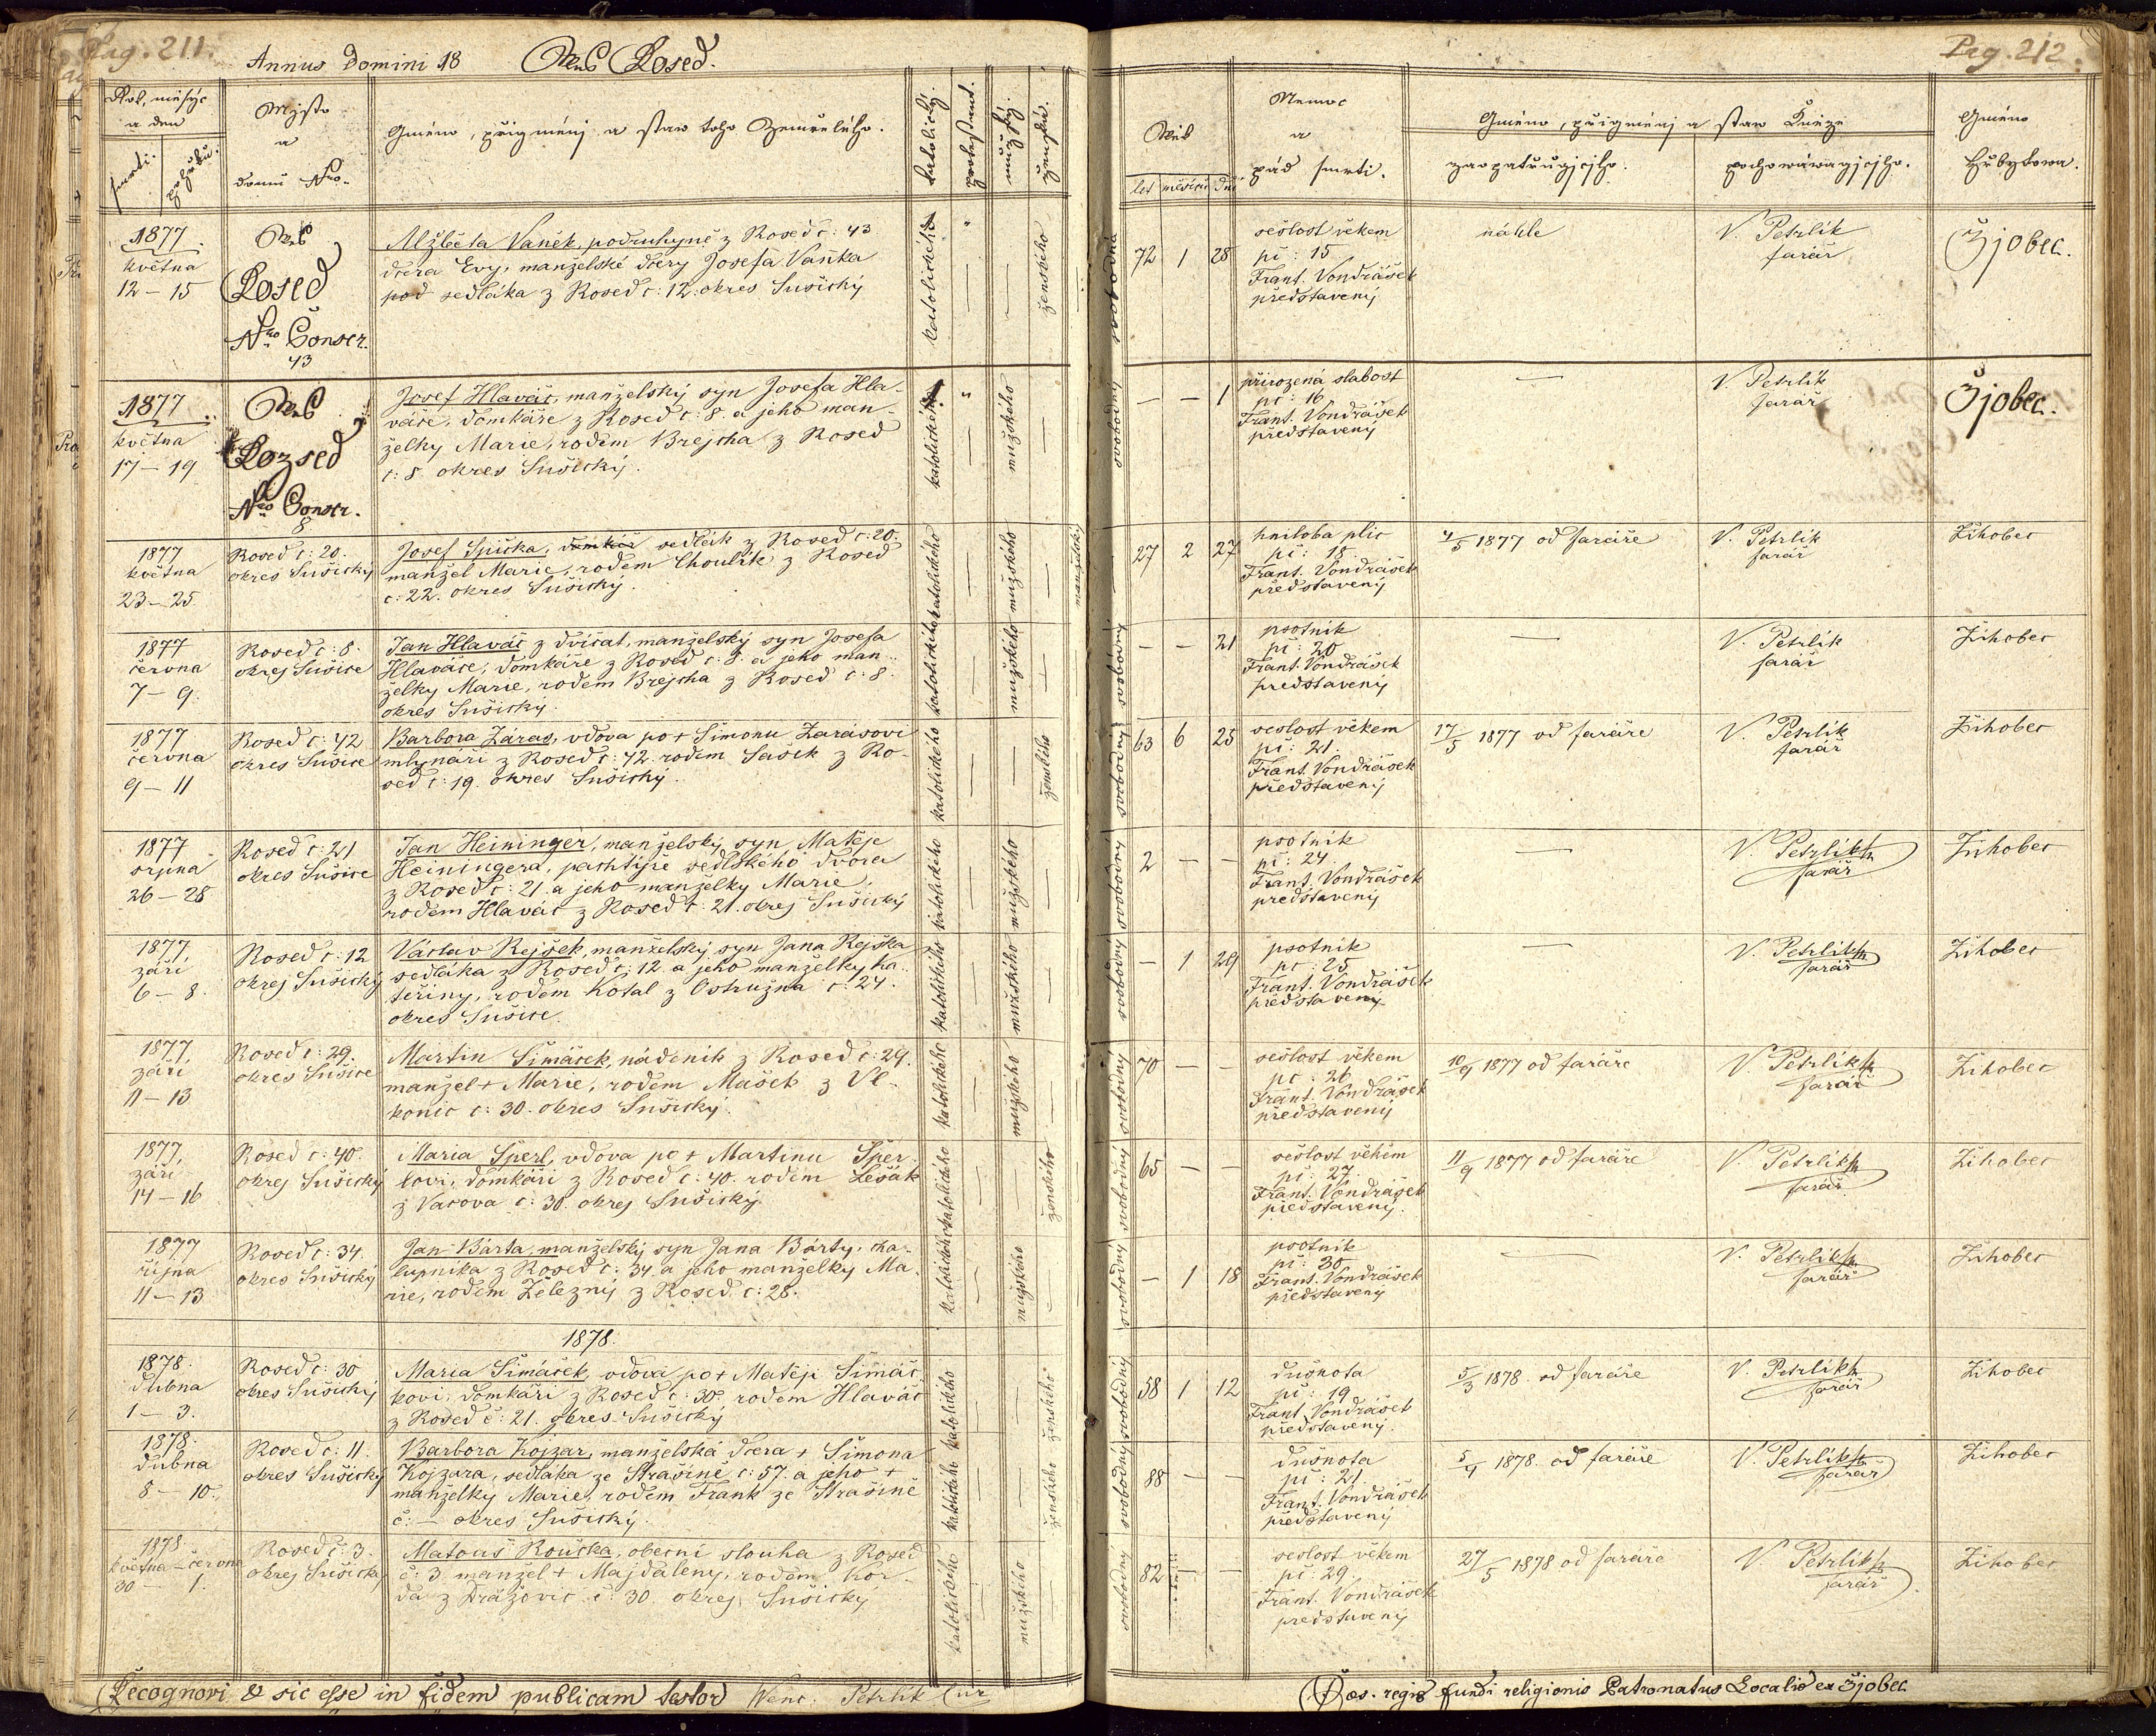 Pag. 211.
Annus Domini 18 Wes Rosed.
Rok, měsýc
a den
smrti. pohřbu.
Mjsto
a
domu Nro.
Gméno, přigménj a staw toho Zemřelého.
katolický.
protestant.
mužský.
ženský.
1877
května
12 – 15
Wes
Rosed
Nro Conscr.
43
Alžběta Vaněk, podruhyně z Rosed č: 43
dcera Evy, manželské dcery Josefa Vaňka
pod sedláka z Rosed č: 12. okres Sušický
katolického
ženského
1877
května
17 – 19
Wes
Rozsed
Nro Conscr.
8.
Josef Hlaváč, manželský syn Josefa Hla-
váče, domkáře z Rosed č: 8 a jeho man-
želky Marie, rodem Brejcha z Rosed
č: 8. okres Sušický.
katolického
mužského
1877
května
23 – 25
Rosed č: 20.
okres Sušický
Josef Spička, domkář sedlák z Rosed č: 20.
manžel Marie, rodem Choulík z Rosed
č: 22. okres Sušický.
katolického
mužského
manželský
1877
června
7 – 9.
Rosed č: 8.
okres Sušice
Jan Hlaváč z dvíčat, manželský syn Josefa
Hlaváče, domkáře z Rosed č: 8. a jeho man-
želky Marie, rodem Brejcha z Rosed č: 8.
okres Sušický.
katolického
mužského
1877
června
9 – 11
Rosed č: 42
okres Sušice
Barbora Záras, vdova po + Šimonu Zarasovi
mlynáři z Rosed č: 42. rodem Sašek z Ro-
sed č: 19. okres Sušický.
katolického
ženského
1877
srpna
26 – 28
Rosed č: 21
okres Sušice
Jan Heininger, manželský syn Matěje
Heiningera, pachtýře sedlského dvora
z Rosed č: 21. a jeho manželky Marie,
rodem Hlaváč z Rosed č: 21. okres Sušický
katolického
mužského
1877
září
6 – 8.
Rosed č: 12
okres Sušický
Václav Rejšek, manželský syn Jana Rejška
sedláka z Rosed č: 12. a jeho manželky Ka-
teřiny, rodem Kotal z Ostružna č: 24.
okres Sušice.
katolického
mužského
1877
září
11 – 13
Rosed č: 29.
okres Sušice
Martin Šimáček, nádeník z Rosed č: 29.
manžel + Marie, rodem Mašek z Vl-
konic č: 30. okres Sušický.
katolického
mužského
1877
září
14 – 16
Rosed č: 40.
okres Sušický
Maria Sperl, vdova po + Martinu Šper-
lovi, domkáři z Rosed č: 40. rodem Lešák
z Vacova č: 30. okres Sušický.
katolického
ženského
1877
října
11 – 13
Rosed č: 34.
okres Sušický
Jan Bárta, manželský syn Jana Bárty, cha-
lupníka z Rosed č: 34. a jeho manželky Ma-
rie, rodem Železný z Rosed č: 28.
katolického
mužského
1878.
1878.
dubna
1 – 3.
Rosed č: 30
okres Sušický
Maria Šimáček, vdova po + Matěji Šimáč-
kovi, domkáři z Rosed č: 30. rodem Hlaváč
z Rosed č: 21. okres Sušický
katolického
ženského
1878.
dubna
8 – 10.
Rosed č: 11.
okres Sušický
Barbora Kojzar, manželská dcera + Šimona
Kojzara, sedláka ze Strašíně č: 57. a jeho +
manželky Marie, rodem Frank ze Strašíně
č: – okres Sušický.
katolického
ženského
1878
května – června
30 – 1.
Rosed č: 3.
okres Sušický
Matouš Rouška, obecní slouha z Rosed
č: 3. manžel + Majdaleny, rodem Kor-
da z Drážovic č: 30. okres Sušický
katolického
mužského
Recognovi & sic esse in fidem publicam testor Wenc. Petrlik Cur
Pag. 212.
Wěk
let měsíců dnů
Nemoc
a
pád smrti.
Gméno, přigménj a staw Kněze
zaopatřugjcjho.
pochowáwagjcjho.
Gméno
Hřbytowa.
svobodná
72 1 28
sešlost věkem
pč: 15
Frant. Vondrášek
představený
náhle
V. Petrlík
farář
Žjobec.
svobodný
– – 1
přirozená slabost
pč: 16
Frant. Vondrášek
představený
—
V. Petrlík
farář
Žjobec.
27 2 27
hniloba plic
pč: 18.
Frant. Vondrášek
představený
4/5 1877 od faráře
V. Petrlík
farář
Žihobec
svobodný
– – 21
psotník
pč: 20
Frant. Vondrášek
představený
—
V. Petrlík
farář
Žihobec
svobodný
63 6 25
sešlost věkem
pč: 21.
Frant. Vondrášek
představený
17/5 1877 od faráře
V. Petrlík
farář
Žihobec
svobodný
2 – –
psotník
pč: 24.
Frant. Vondrášek
představený
—
V. Petrlík
farář
Žihobec
svobodný
– 1 29
psotník
pč: 25
Frant. Vondrášek
představený
—
V. Petrlík
farář
Žihobec
svobodný
70 – –
sešlost věkem
pč: 26
Frant. Vondrášek
představený
10/9 1877 od faráře
V. Petrlík
farář
Žihobec
svobodný
65 – –
sešlost věkem
pč: 27.
Frant. Vondrášek
představený.
11/9 1877 od faráře
V. Petrlík
farář
Žihobec
svobodný
– 1 18
psotník
pč: 30
Frant. Vondrášek
představený
—
V. Petrlík
farář
Žihobec
svobodný
58 1 12
dušnota
pč: 19
Frant. Vondrášek
představený.
5/3 1878. od faráře
V. Petrlík
farář
Žihobec
svobodný
88 – –
dušnota
pč: 21.
Frant. Vondrášek
představený
5/4 1878. od faráře
V. Petrlík
farář
Žihobec
svobodný
82 – –
sešlost věkem
pč: 29.
Frant. Vondrášek
představený
27/5 1878 od faráře
V. Petrlík
farář
Žihobec
Cæs. regio fundi religionis Patronatus Localis ex Žjobec